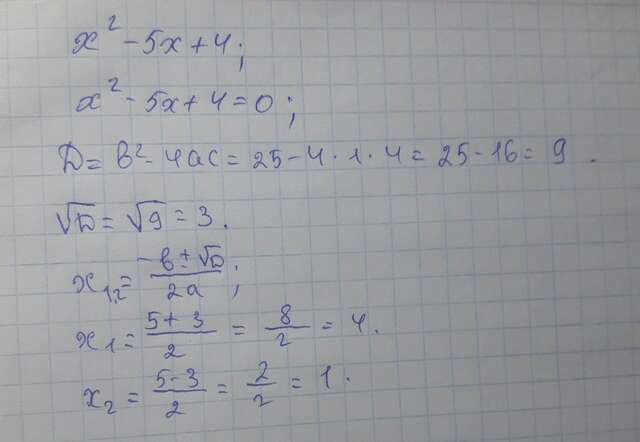 x² - 5x + 4;
x² - 5x + 4 = 0;
D = b² - 4ac = 25 - 4 · 1 · 4 = 25 - 16 = 9.
√D = √9 = 3.
x₁,₂ = (-b ± √D)/(2a);
x₁ = (5 + 3)/2 = 8/2 = 4.
x₂ = (5 - 3)/2 = 2/2 = 1.